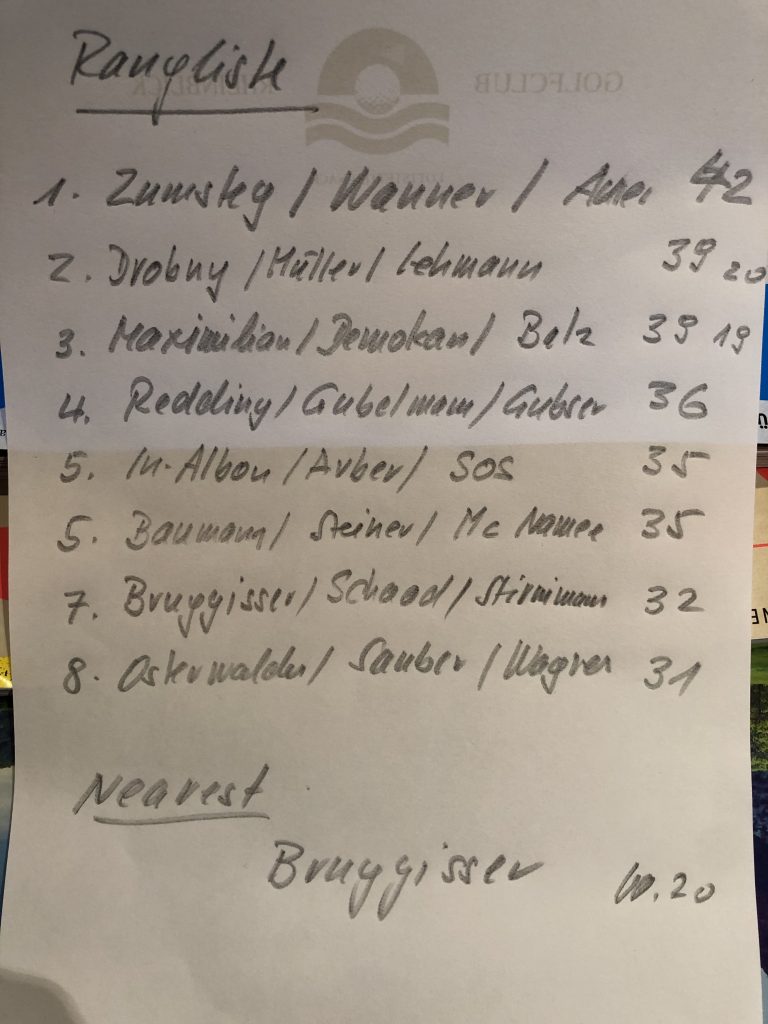 GOLFCLUB RHEINBLICK
Rangliste
1. Zumsteg / Wanner / 42
2. Drobny / Müller / Lehmann 39 20
3. Maximilian / Demokan / Belz 39 19
4. Redding / Gubelmann / Gubser 36
5. In-Albon / Arber / SOS 35
5. Baumann / Steiner / Mc Namee 35
7. Bruggisser / Schaad / Stirnimann 32
8. Osterwalder / Sauber / Wagner 31
Nearest
Bruggisser